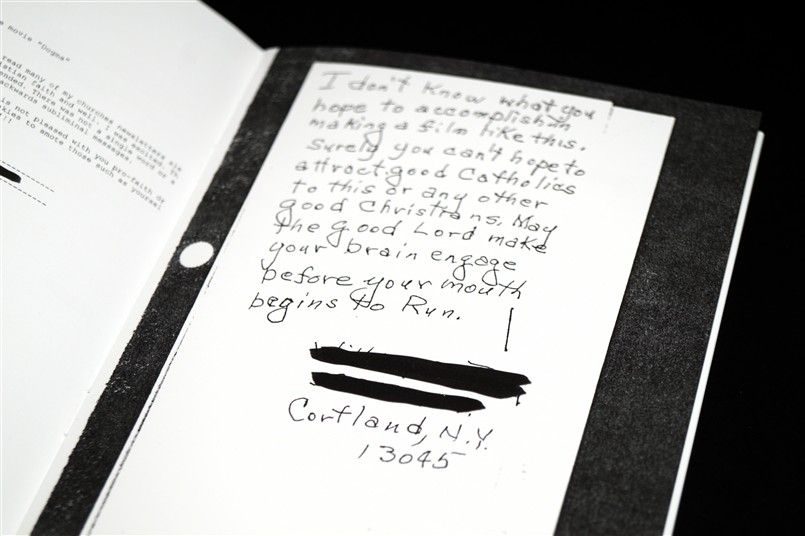 movie "Dogma"
read many of my churches newsletters
faith and well, I was excited.
There was not a single word or a
backwards subliminal messages.
is not pleased with you pro-faith or
to smote those such as
I don't know what you
hope to accomplish in
making a film like this.
Surely you can't hope to
attract good Catholics
to this or any other
good Christians. May
the good Lord make
your brain engage
before your mouth
begins to Run.
Cortland, N.Y.
13045